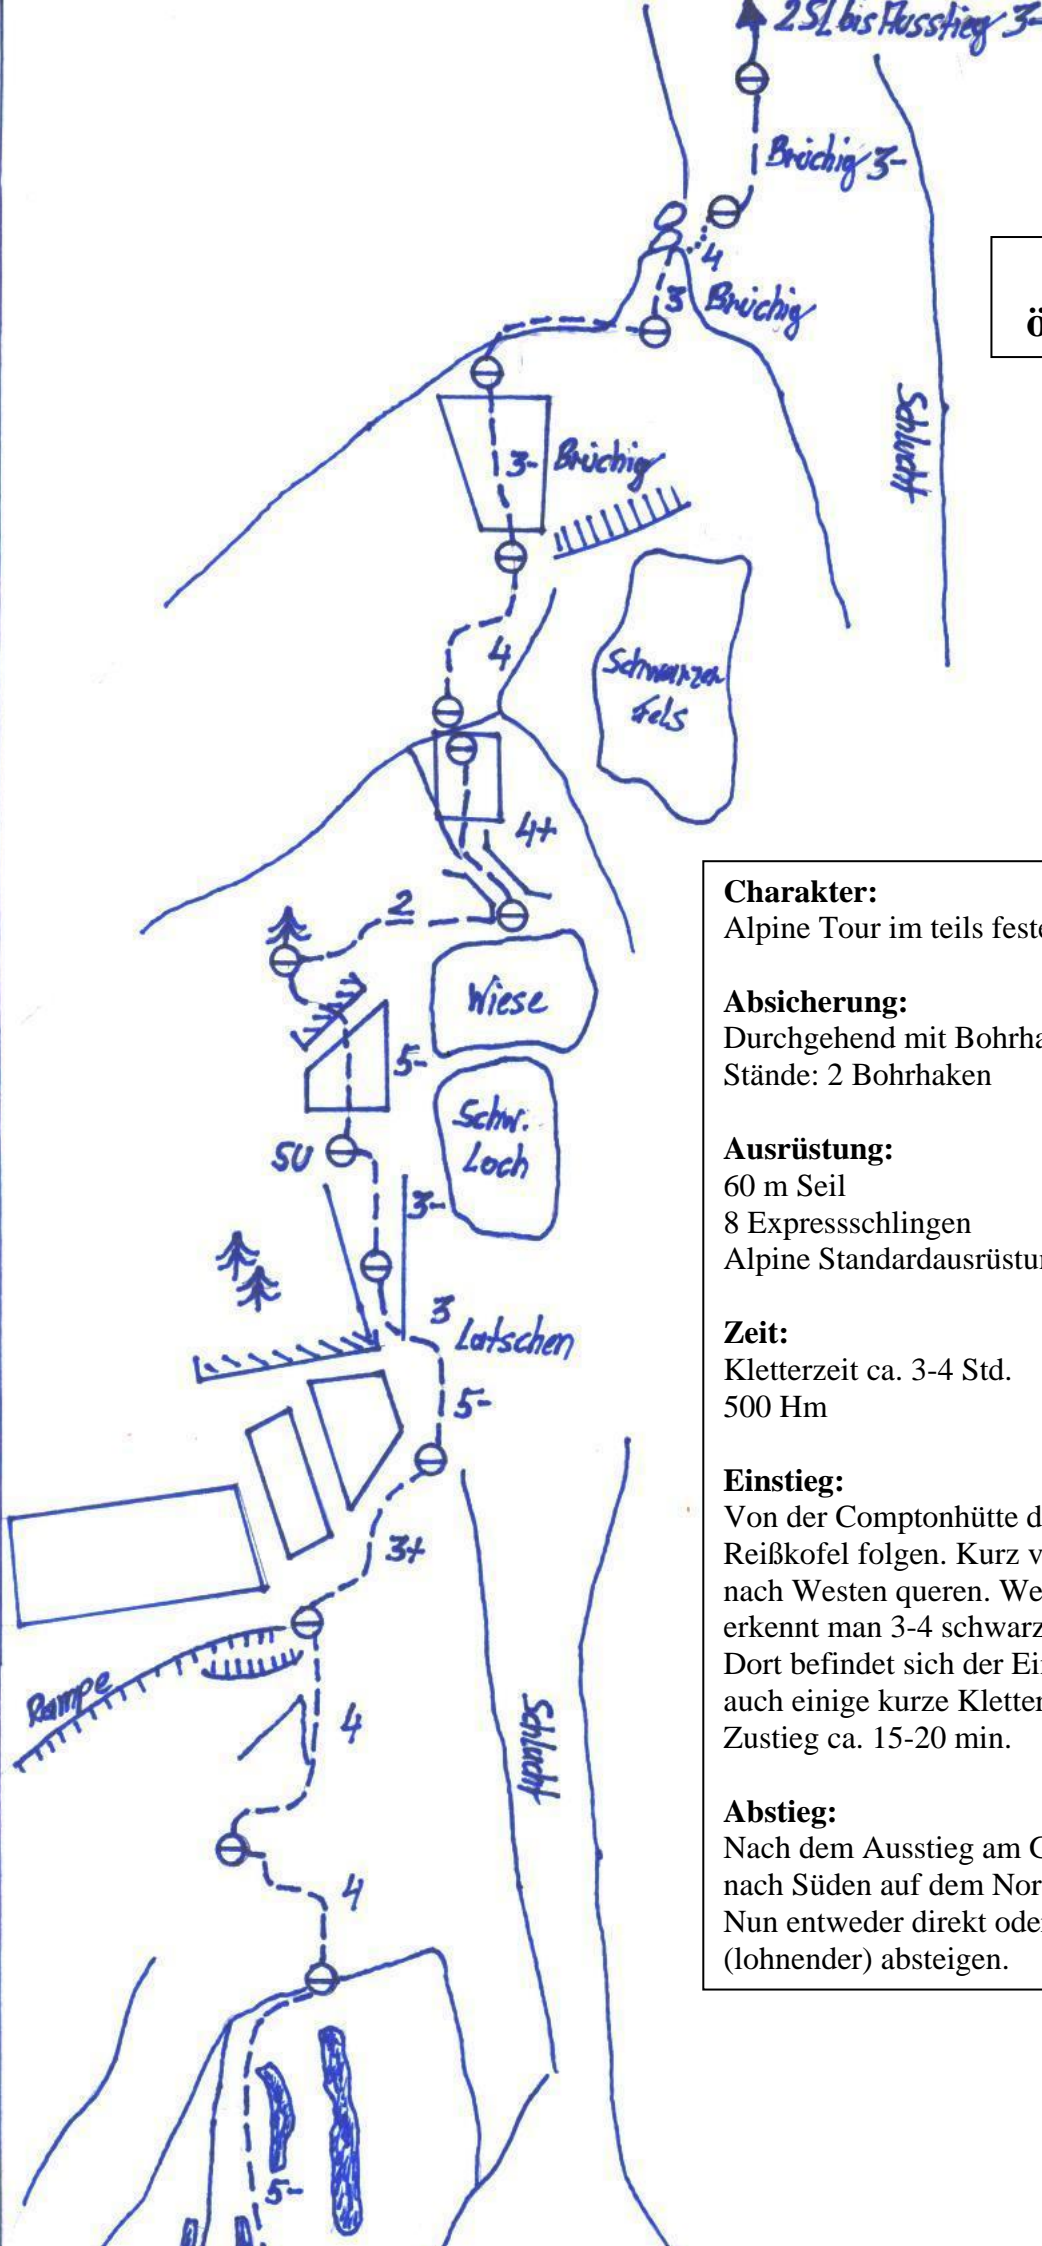 2SL bis Ausstieg 3-
Brüchig 3-
4
3 Brüchig
ö
Schlucht
3- Brüchig
4
Schwarzer
Fels
4+
2
Wiese
5-
Schw.
Loch
SU
3-
3
Latschen
5-
3+
Rampe
4
Schlucht
4
5-
Charakter:
Alpine Tour im teils feste
Absicherung:
Durchgehend mit Bohrha
Stände: 2 Bohrhaken
Ausrüstung:
60 m Seil
8 Expressschlingen
Alpine Standardausrüstu
Zeit:
Kletterzeit ca. 3-4 Std.
500 Hm
Einstieg:
Von der Comptonhütte d
Reißkofel folgen. Kurz v
nach Westen queren. We
erkennt man 3-4 schwarz
Dort befindet sich der Ei
auch einige kurze Kletter
Zustieg ca. 15-20 min.
Abstieg:
Nach dem Ausstieg am G
nach Süden auf dem Nor
Nun entweder direkt ode
(lohnender) absteigen.